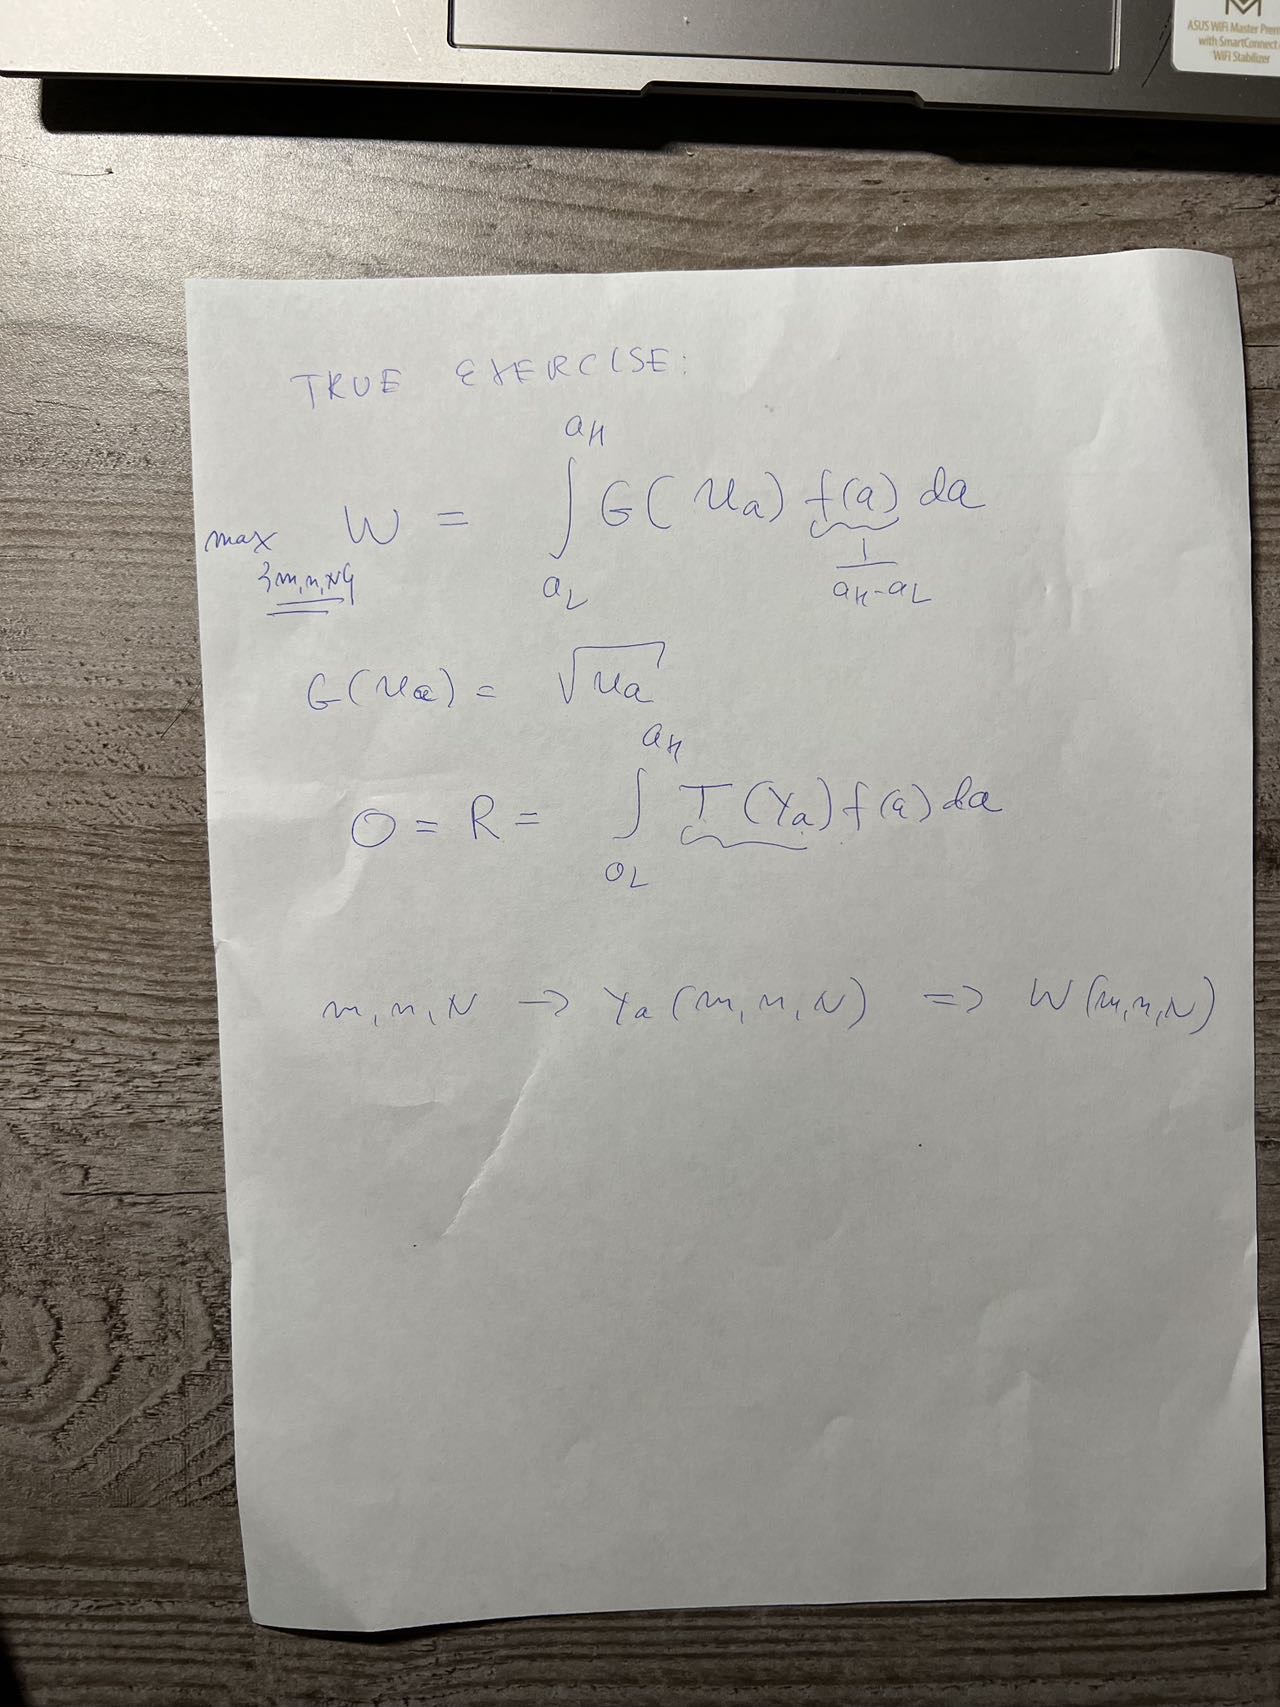 ASUS WiFi Master Prem
with SmartConnect
WiFi Stabilizer
TRUE EXERCISE:
max {m,n,N} W = ∫_{a_L}^{a_H} G(u_a) f(a) da
1/(a_H-a_L)
G(u_a) = √u_a
0 = R = ∫_{a_L}^{a_H} T(Y_a) f(a) da
m, n, N → Y_a (m, n, N) ⇒ W(m,n,N)